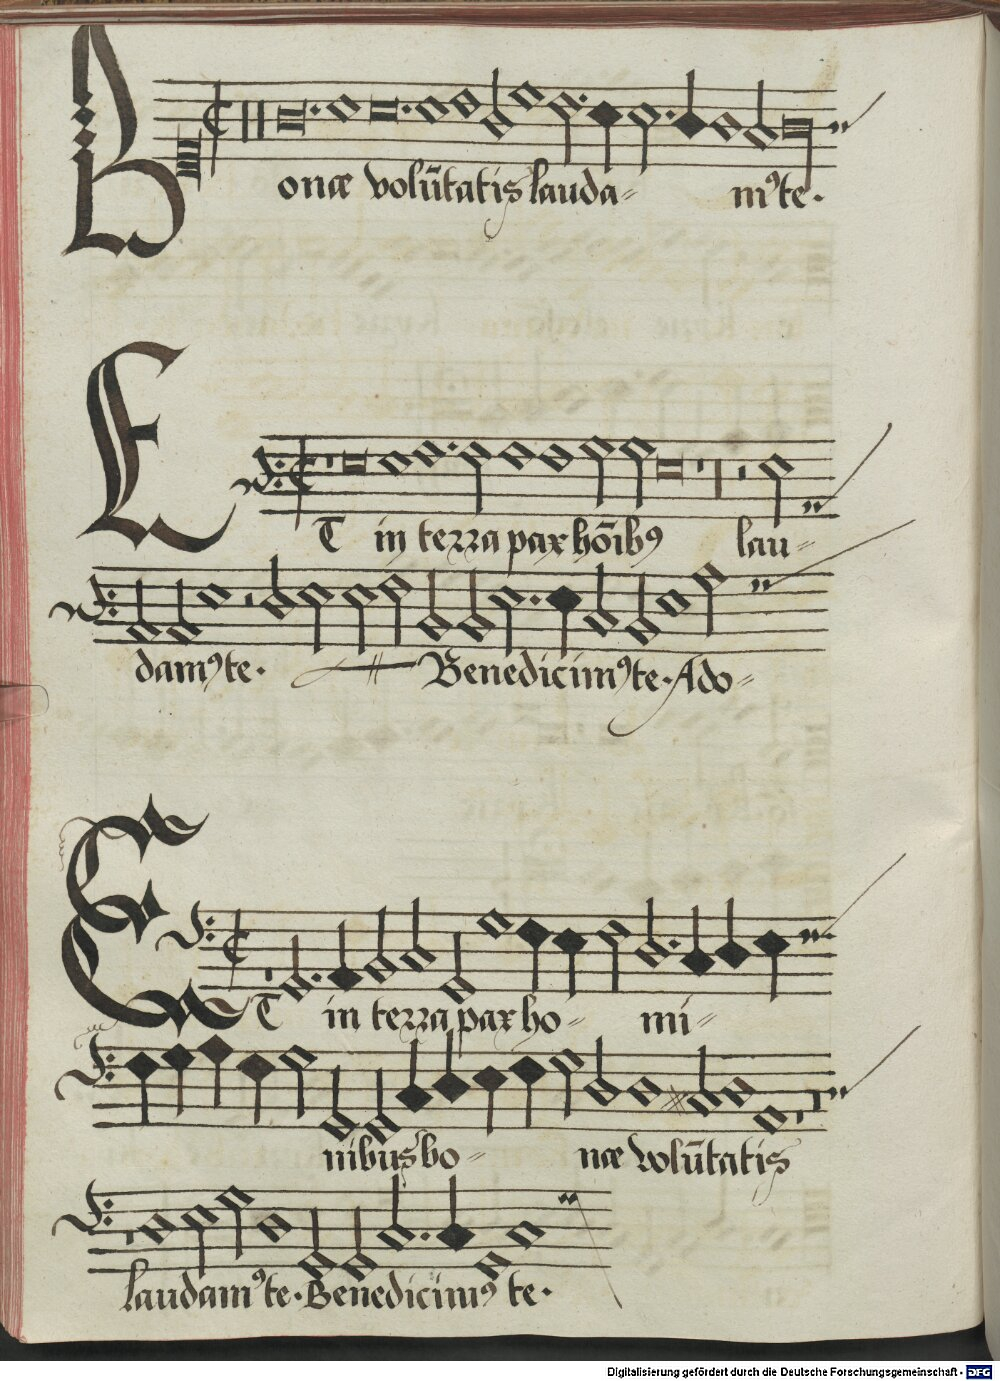 Bonæ volũtatis lauda- m⁹ te.
ET in terra pax hōib⁹ lau-
dam⁹ te. Benedicim⁹ te. Ado-
ET in terra pax ho- mi-
nibus bo- næ volũtatis
laudam⁹ te. Benedicim⁹ te.
Digitalisierung gefördert durch die Deutsche Forschungsgemeinschaft - DFG